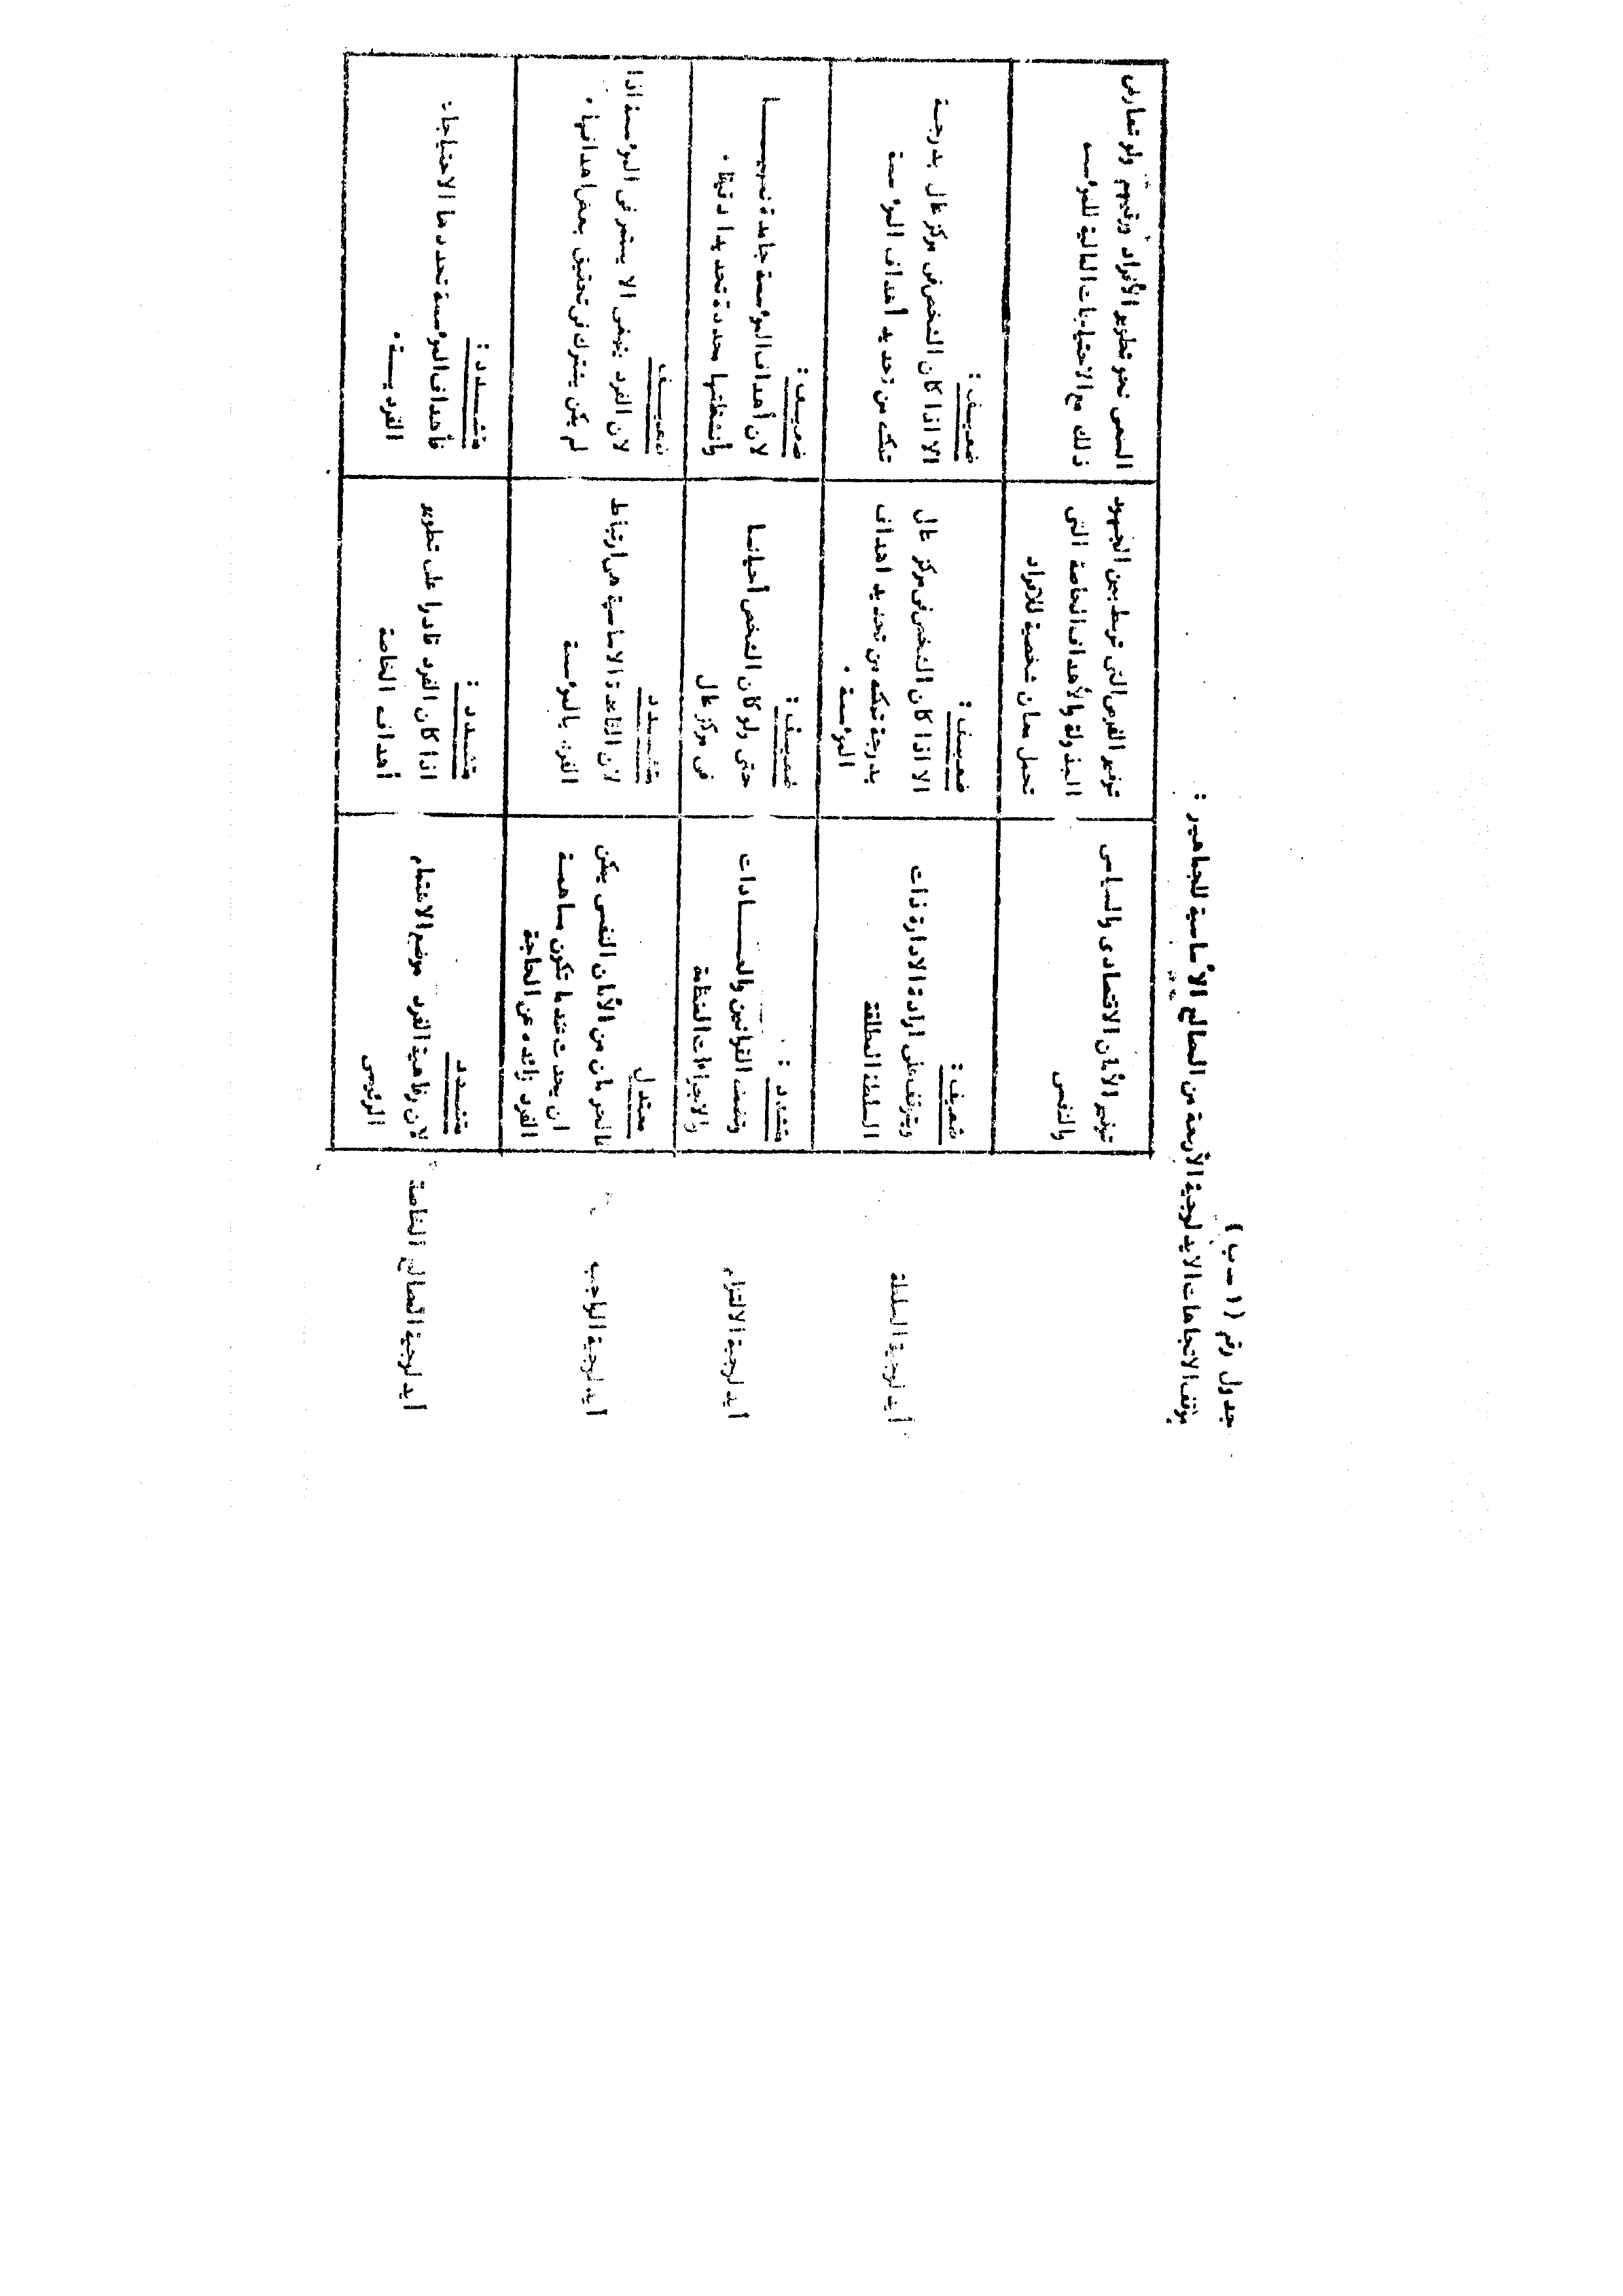 جدول رقم (١ – ب)
موقف الاتجاهات الايدلوجية الأربعة من المصالح الأساسية للجماهير :
توفير الأمان الاقتصادى والسياسى
والنفسى
توفير الفرص التى تربط بين الجهود
المبذولة والأهداف الخاصة التى
تحمل معان شخصية للافراد
السعى نحو تطوير الأفراد ورقيهم ولو تعارض
ذلك مع الاحتياجات الحالية للمؤسسه
أيدلوجية السلطة
ضعيف :
ويتوقف على ارادة الادارة ذات
السلطة المطلقة
ضعيف :
الا اذا كان الشخص فى مركز عال
بدرجة تمكنه من تحديد اهداف
المؤسسة .
ضعيف :
الا اذا كان الشخص فى مركز عال بدرجة
تمكنه من تحديد أهداف المؤسسة
أيدلوجية الالتزام
متشدد :
وتضعف القوانين والعــــادات
والاجراءات المنظمة
ضعيف :
حتى ولو كان الشخص أحيانـا
فى مركز عال
ضعيف :
لان أهداف المؤسسة جامدة نسبيــــا
وأنشطتها محددة تحديدا دقيقا .
أيدلوجية الواجب
معتدل
فالحرمان من الأمان النفسى يمكن
ان يحدث عندما تكون مساهمة
الفرد زائده عن الحاجة
متشـدد
لان القاعدة الاساسية هى ارتباط
الفرد بالمؤسسة
ضعيــف
لان الفرد ينبغى الا يستمر فى المؤسسة اذا
لم يكن يشترك فى تحقيق بعض اهدافها .
ايدلوجية المصالح الخاصة
متشـدد
لان رفاهية الفرد موضع الاهتمام
الرئيسى
متشـدد :
اذا كان الفرد قادرا على تطوير
أهداف الخاصة
متشــدد :
فأهداف المؤسسة تحددها الاحتياجات
الفرديــــة .